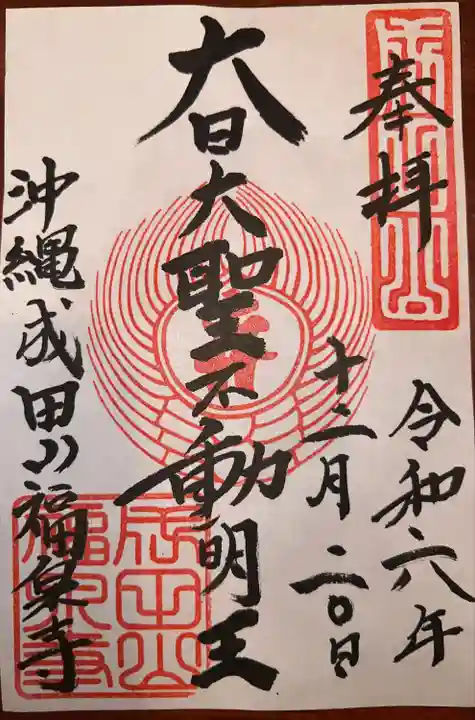 奉拝
令和六年
十二月二〇日
大日大聖不動明王
沖縄成田山福泉寺